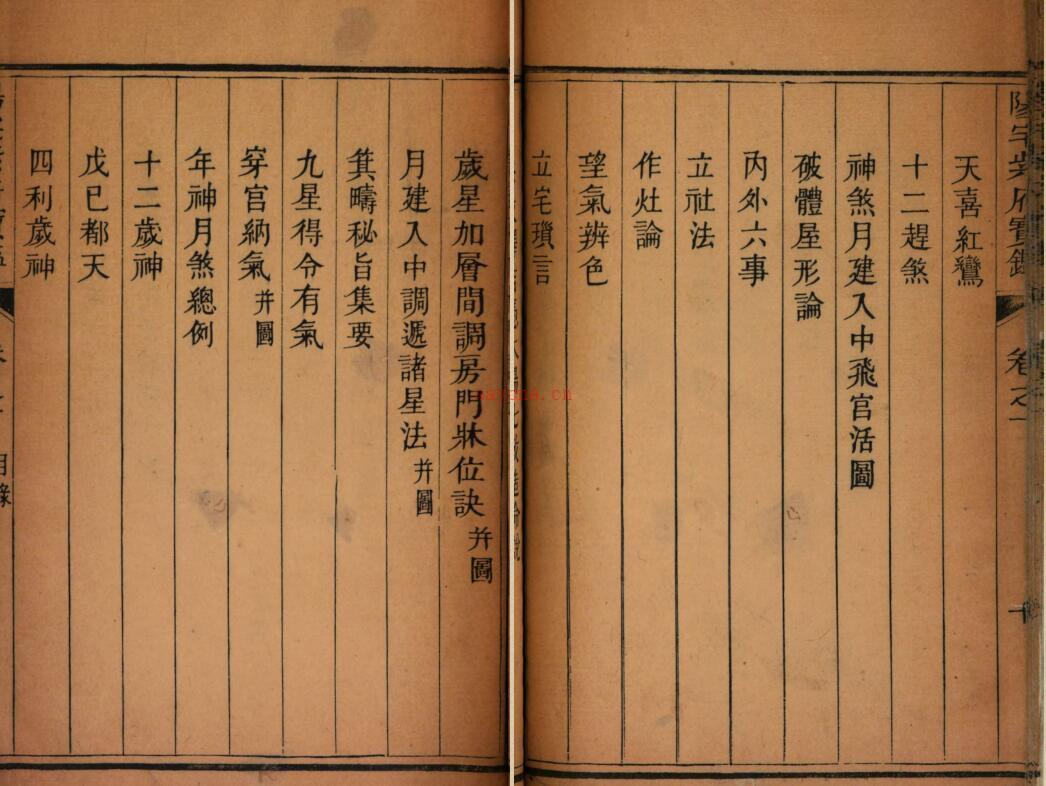 陽宅紫府寶鑑
卷之一
十
天喜紅鸞
十二趕煞
神煞月建入中飛宮活圖
破體屋形論
內外六事
立社法
作灶論
望氣辨色
立宅瑣言
歲星加層間調房門牀位訣 并圖
月建入中調遞諸星法 并圖
箕疇秘旨集要
九星得令有氣
穿宮納氣 并圖
年神月煞總例
十二歲神
戊巳都天
四利歲神
目錄